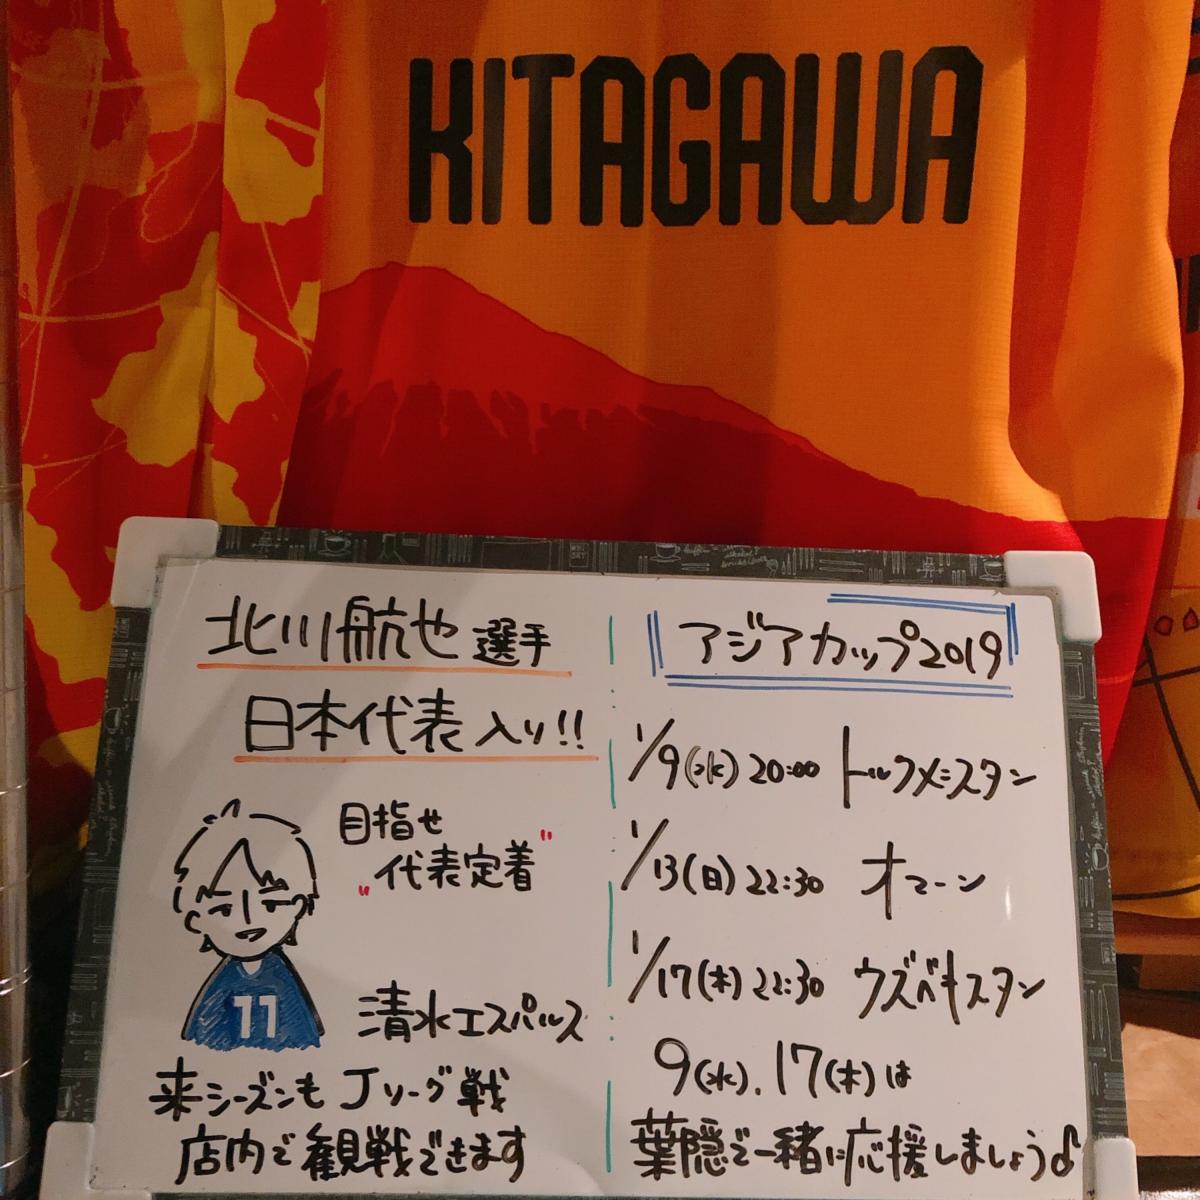 KITAGAWA
北川航也 選手
日本代表 入り!!
目指せ
"代表定着"
11
清水エスパルス
来シーズンも Jリーグ戦
店内で観戦できます
アジアカップ2019
1/9(水) 20:00 トルクメニスタン
1/13(日) 22:30 オマーン
1/17(木) 22:30 ウズベキスタン
9(水).17(木)は
葉隠で一緒に応援しましょう♪